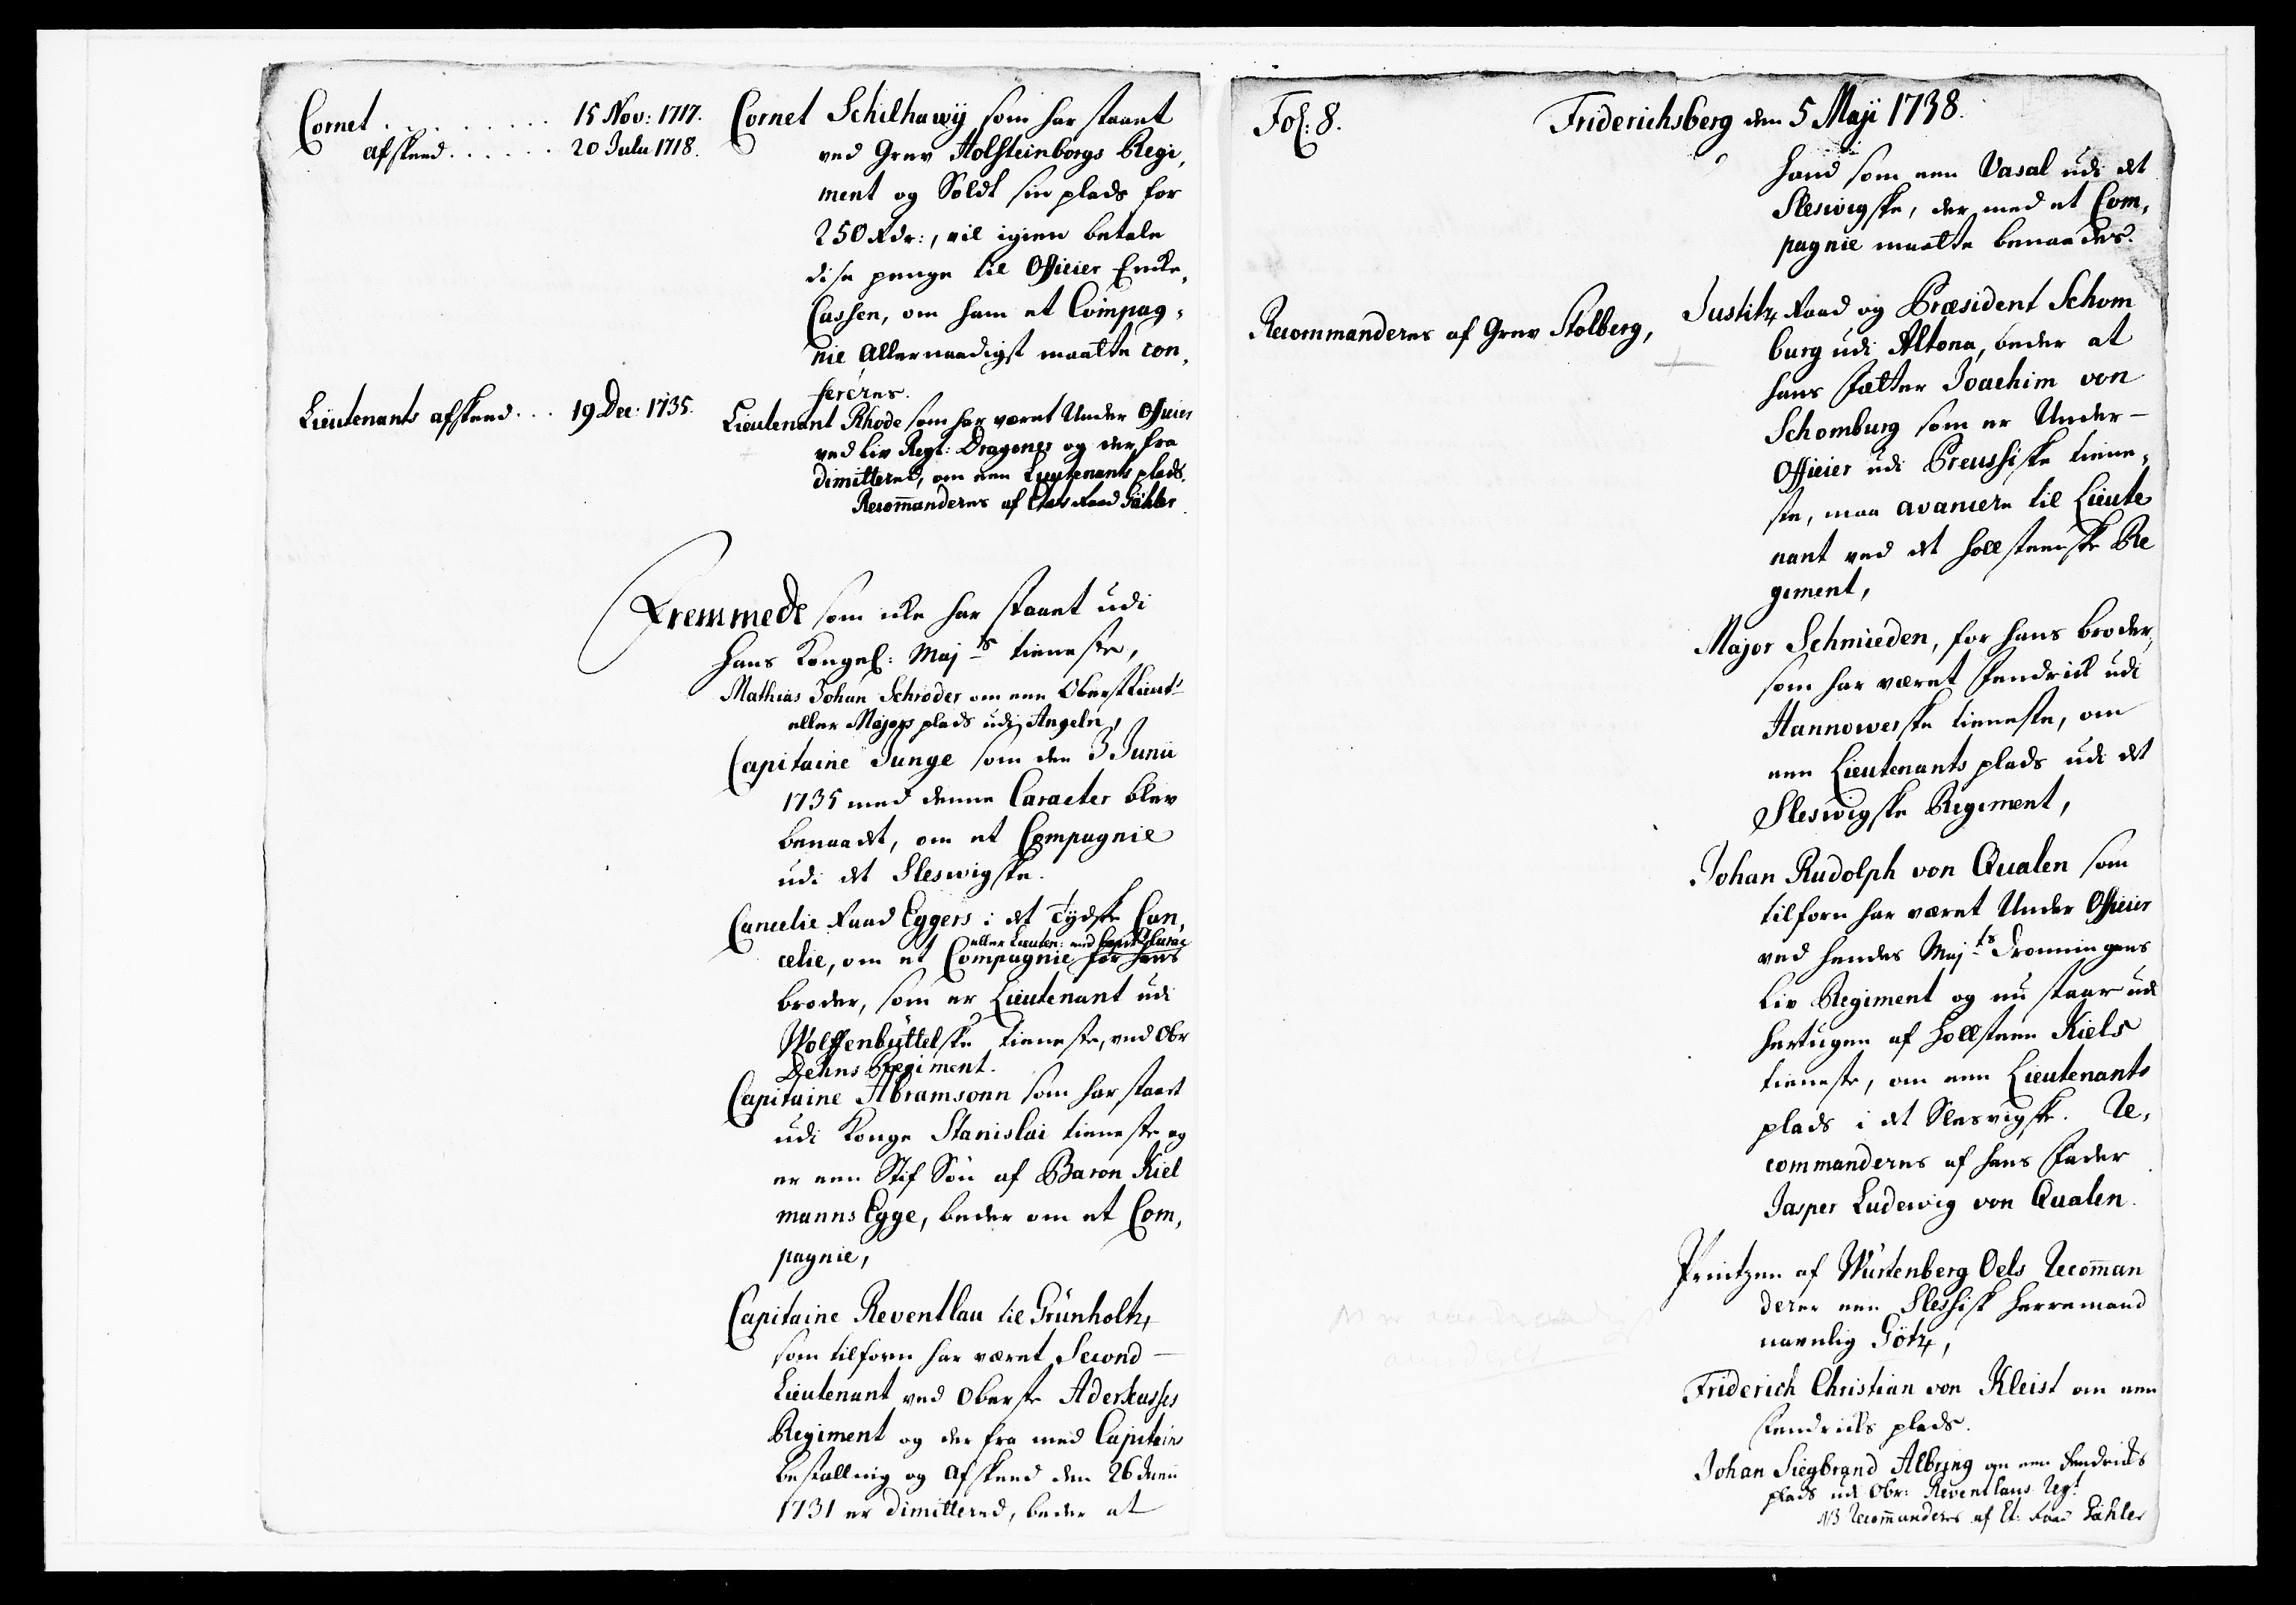 Cornet . . . . . . . . . 15 Nov: 1717.
afskeed . . . . . . 20 Julii 1718.
Cornet Schilhawÿ som har staaet
ved Grev Holsteinborgs Regi,
ment og Soldt sin plads for
250 Rdr:, vil igien betale
dise penge til Officier Encke,
Cassen, om ham et Compag,
nie Allernaadigst maatte con,
fereres.
Lieutenants afskeed . . . 19 Dec: 1735.
Lieutenant Rhode som har været Under Officier
ved Liv Regt: Dragoner og derfra
dimitteret, om een Lieutenants plads.
Recom̅anderes af Etats Raad Gähler
Fremmede som icke har staaet udi
Hans Kongel: Majts tieneste,
Mathias Johan Schrøder om een Oberstlieutts
eller Majors plads udi Angeln,
Capitaine Junge som den 3 Junii
1735 med denne Caracter blev
benaadet, om et Compagnie
udi det Sleswigske.
Cancelie Raad Eggers i det Tydske Can,
eller Lieuten: med Capits Carac
celie, om et Compagnie for hans
broder, som er Lieutenant udi
Wolffenbüttelske tieneste, ved Obr
Dehns Regiment.
Capitaine Abramsonn som har staaet
udi Konge Stanislai tieneste og
er een Stif Søn af Baron Kiel
mannsEgge, beder om et Com,
pagnie,
Capitaine Reventlau til Grünholtz,
som tilforn har været Second
Lieutenant ved Oberste Aderkasses
Regiment og der fra med Capitains
bestalling og Afskeed den 26 Junii
1731 er dimittered, beder at
Fol: 8. Friderichsberg den 5 Maji 1738.
hand som een Vasal udi det
Sleswigske, der med et Com,
pagnie maatte benaades.
Recommanderes af Grev Stolberg,
Justitz Raad og Præsident Schom
burg udi Altona, beder at
hans Fætter Joachim von
Schomburg som er Under-
Officier udi Preussiske tiene,
ste, maa avancere til Lieute
nant ved det hollsteenske Re
giment,
Major Schmieden, for hans broder,
som har været Fendrick udi
Hannowerske tieneste, om
een Lieutenants plads udi det
Sleswigske Regiment,
Johan Rudolph von Qualen som
tilforn har været Under Officier
ved hendes Majts Dronningens
Liv Regiment og nu staar udi
hertugen af hollsteen Kiels
tieneste, om een Lieutenants
plads i det Slesvigske. Re,
commanderes af hans Fader
Jasper Ludewig von Qualen.
Printzen af Würtenberg Oels Recom̅an
derer een Slessisk herremand
navnlig Götz,
Friderich Christian von Kleist om een
Fendricks plads.
Johan Siegbrand Albring om een Fendricks
plads udi Obr: Reventlaus Regt
NB Recom̅anderes af Et: Raad Gähler